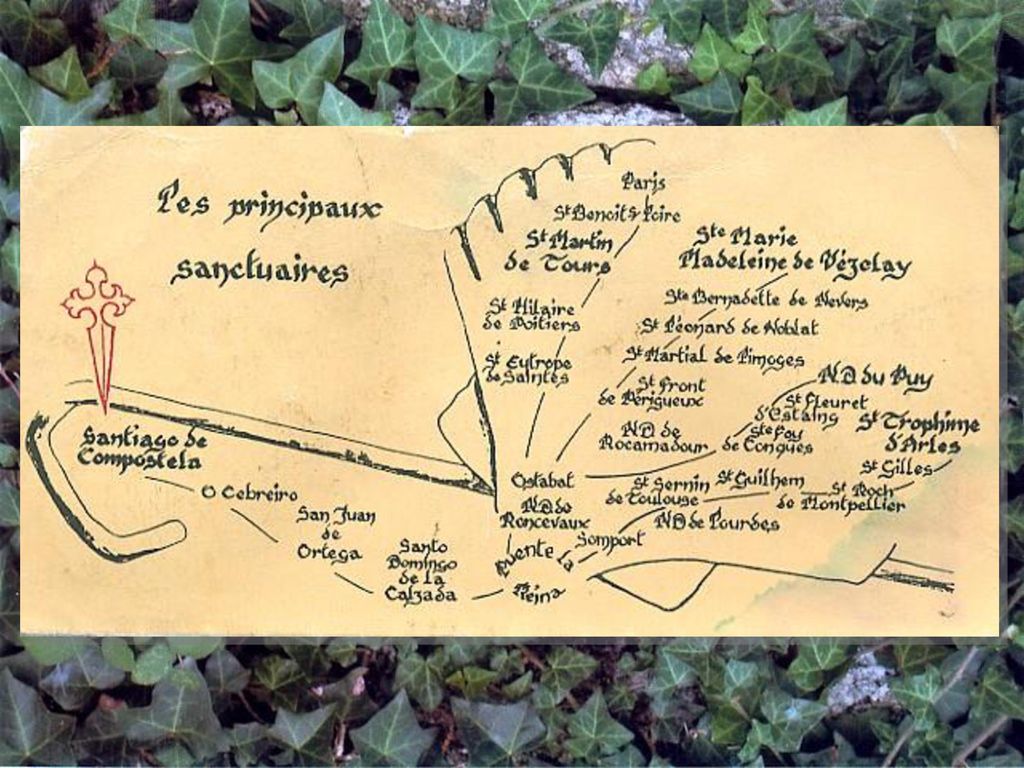 Les principaux
sanctuaires
Paris
St Benoit s/Loire
St Martin
de Tours
Ste Marie
Madeleine de Vézelay
St Hilaire
de Poitiers
Ste Bernadette de Nevers
St Léonard de Noblat
St Eutrope
de Saintes
St Martial de Limoges
St Front
de Périgueux
N.D du Puy
St Fleuret
d'Estaing
St Trophime
d'Arles
ND de
Rocamadour
Ste Foy
de Conques
St Gilles
Ostabat
St Sernin
de Toulouse
St Guilhem
St Roch
de Montpellier
N.D de
Roncevaux
ND de Lourdes
Somport
Puente La
Reina
Santo
Domingo
de la
Calzada
San Juan
de
Ortega
O Cebreiro
Santiago de
Compostela